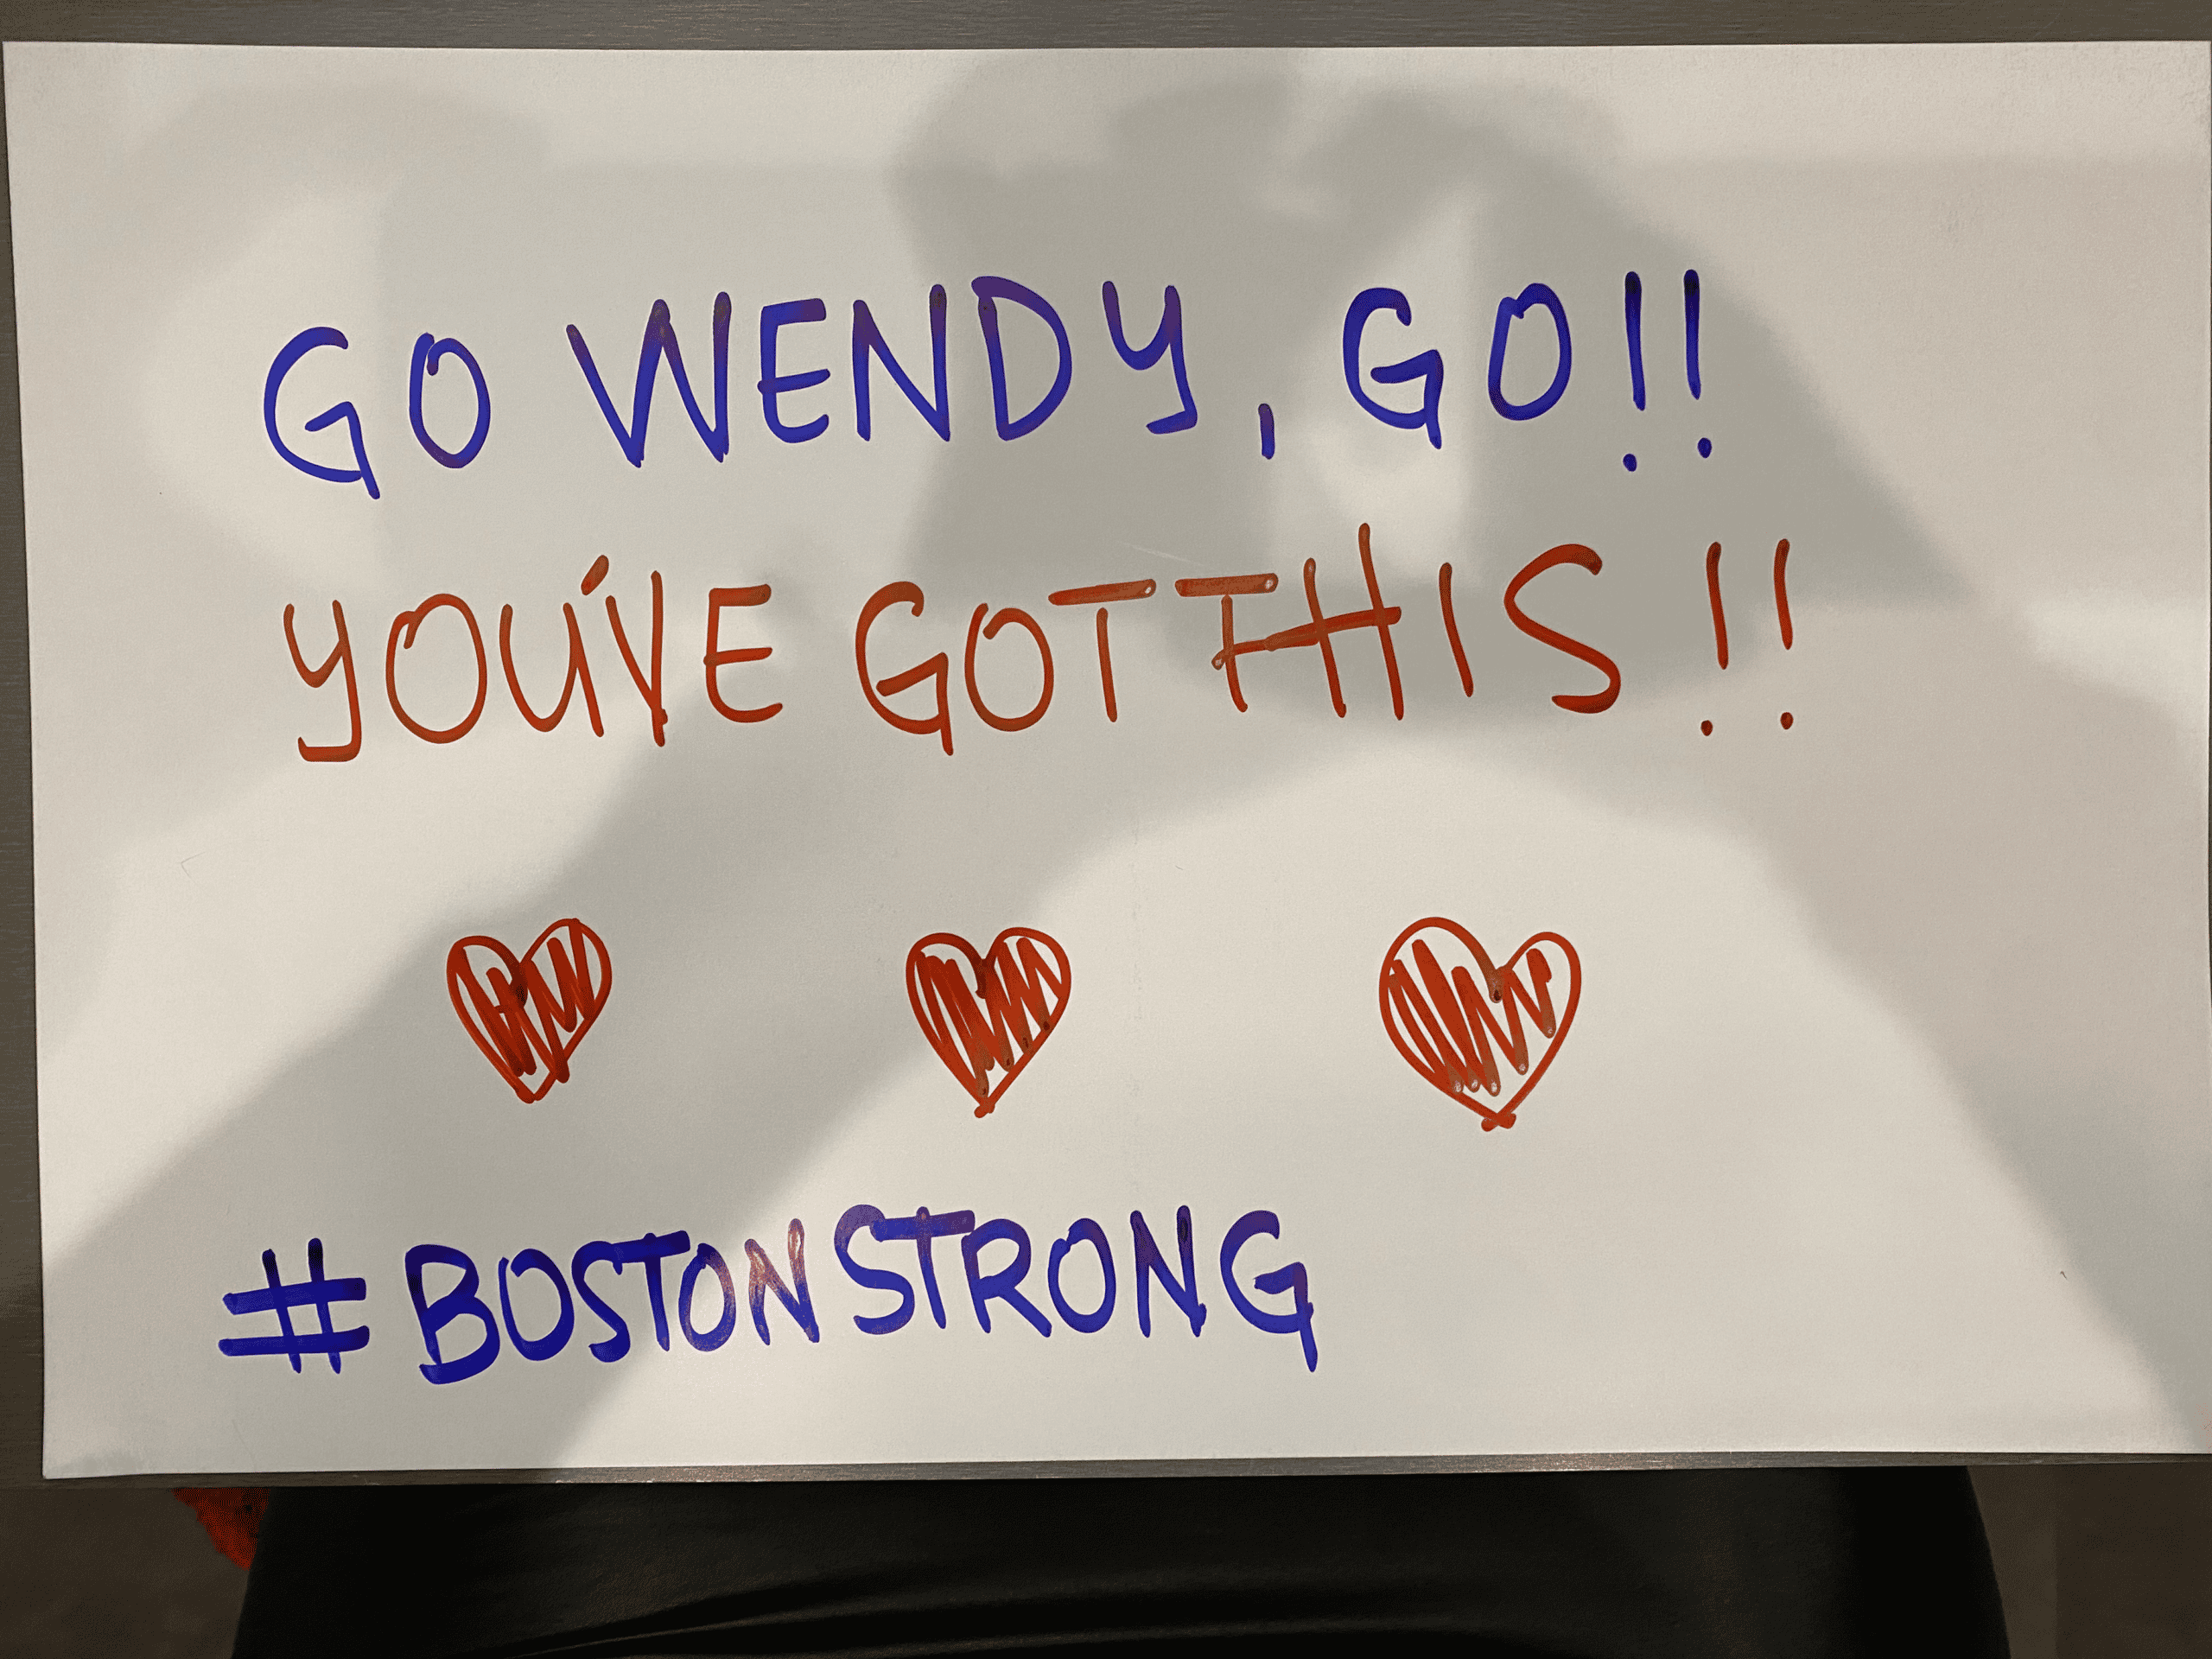 GO WENDY, GO!!
YOU'VE GOT THIS!!
#BOSTONSTRONG